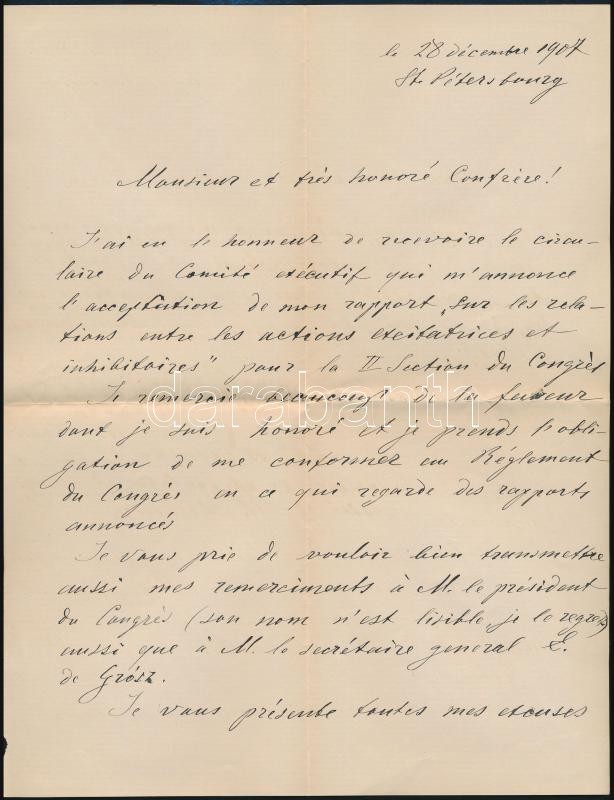 le 28 décembre 1907
St. Pétersbourg
Monsieur et très honoré Confrère!
J'ai eu l'honneur de recevoire le circu-
laire du Comité exécutif qui m'annonce
l'acceptation de mon rapport „Sur les rela-
tions entre les actions excitatrices et
inhibitoires" pour la II Section du Congrès
Je remercie beaucoup de la faveur
dont je suis honoré et je prends l'obli-
gation de me conformer au Réglement
du Congrès en ce qui regarde des rapports
annoncés
Je vous prie de vouloir bien transmettre
aussi mes remerciments à M. le président
du Congrès (son nom n'est lisible, je le regrette)
aussi que à M. le secrétaire general E.
de Grósz.
Je vous présente toutes mes excuses
darabanth